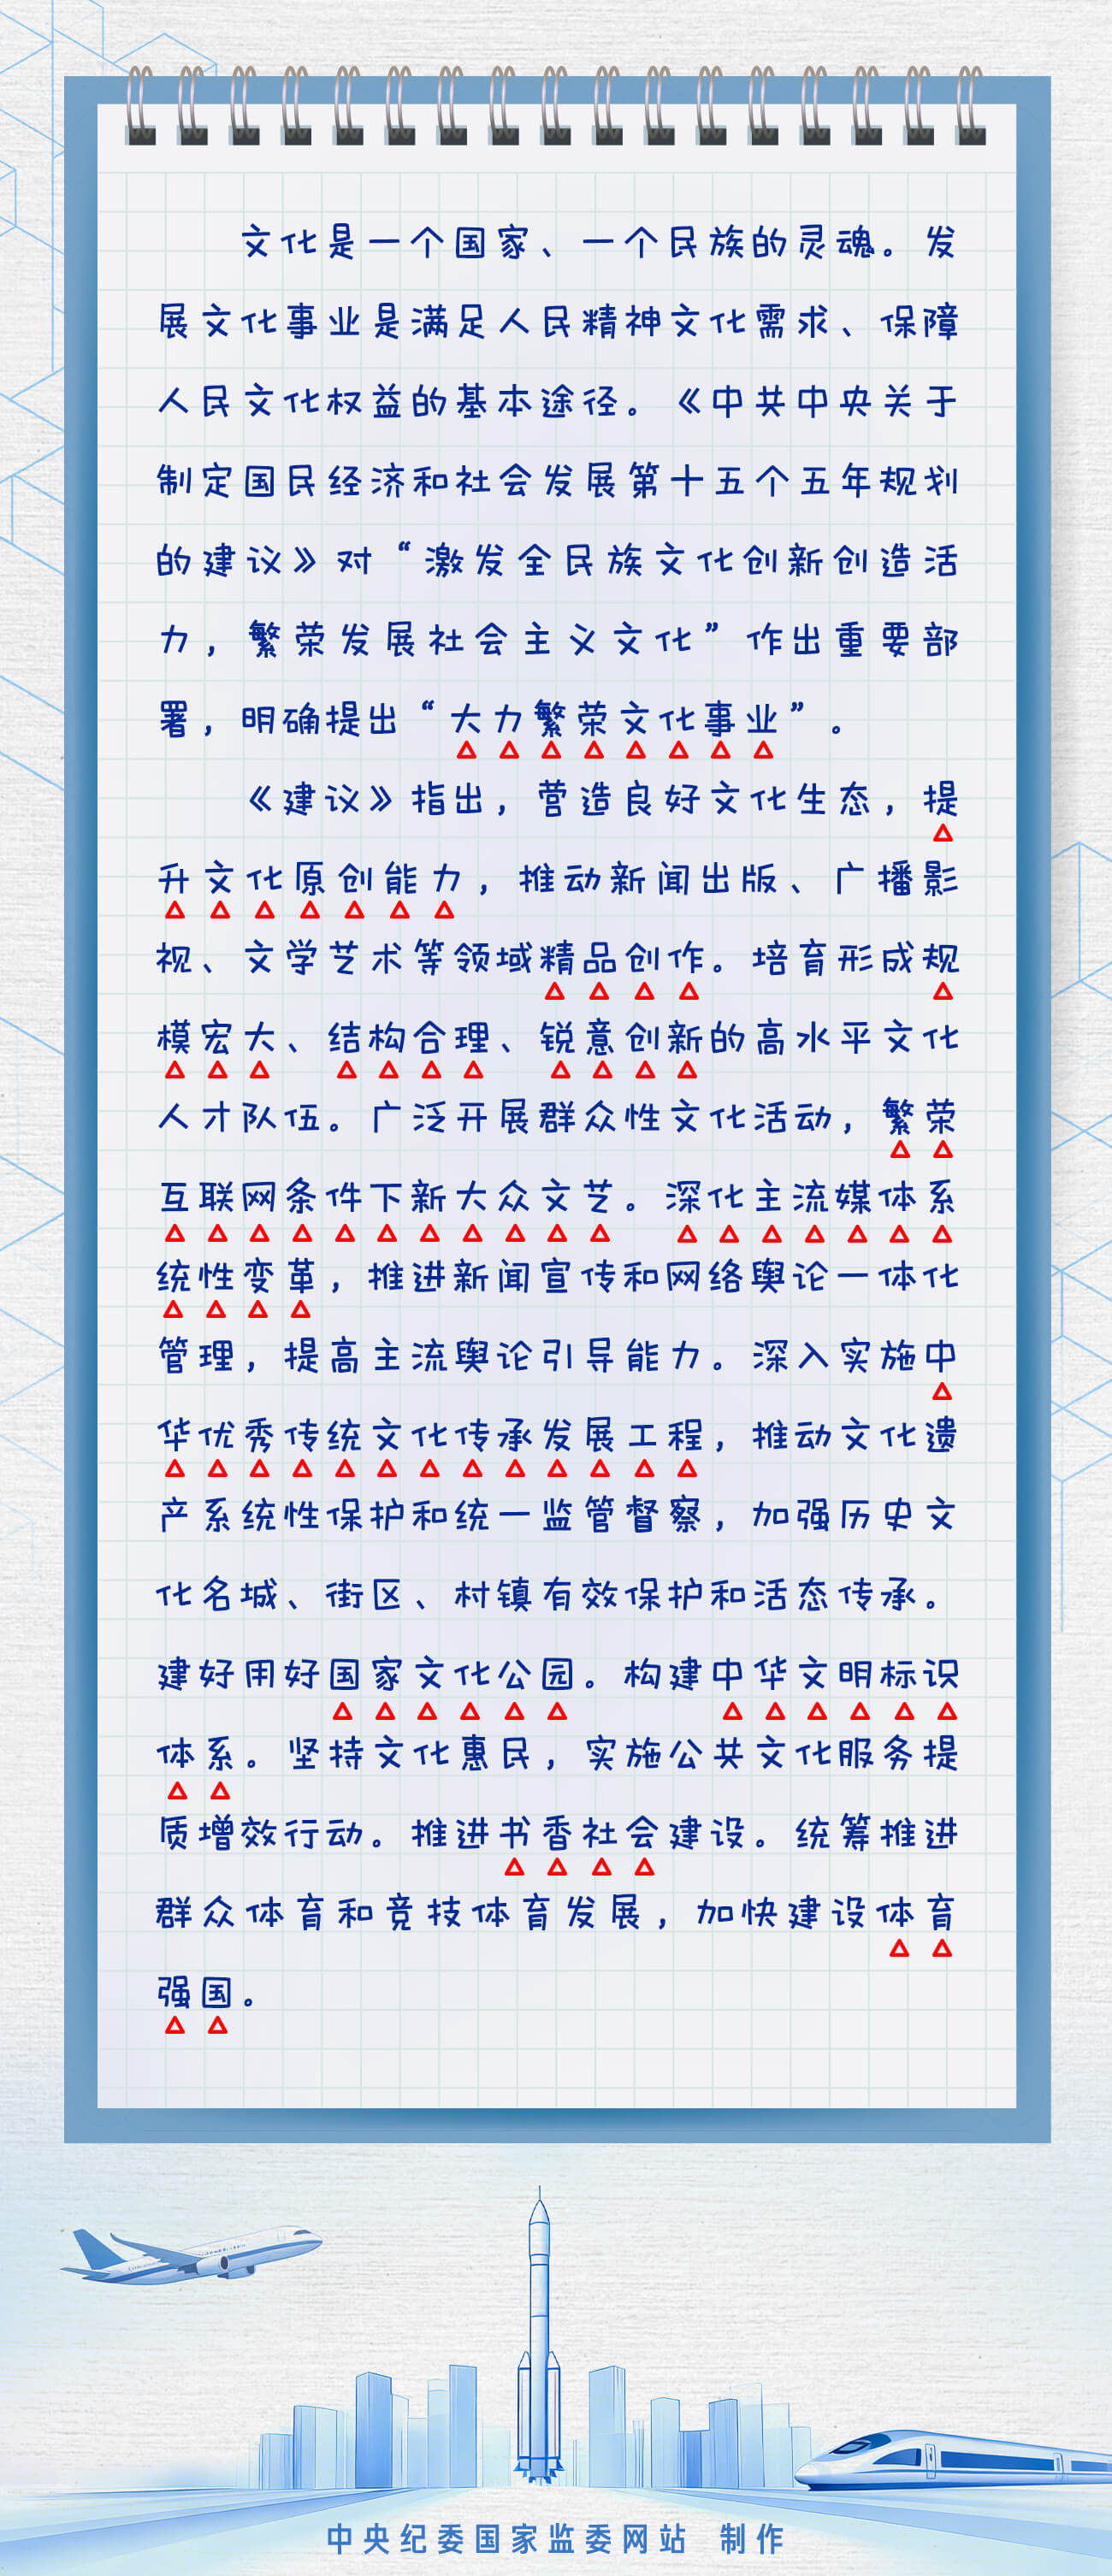 文化是一个国家、一个民族的灵魂。发
展文化事业是满足人民精神文化需求、保障
人民文化权益的基本途径。《中共中央关于
制定国民经济和社会发展第十五个五年规划
的建议》对“激发全民族文化创新创造活
力，繁荣发展社会主义文化”作出重要部
署，明确提出“大力繁荣文化事业”。
《建议》指出，营造良好文化生态，提
升文化原创能力，推动新闻出版、广播影
视、文学艺术等领域精品创作。培育形成规
模宏大、结构合理、锐意创新的高水平文化
人才队伍。广泛开展群众性文化活动，繁荣
互联网条件下新大众文艺。深化主流媒体系
统性变革，推进新闻宣传和网络舆论一体化
管理，提高主流舆论引导能力。深入实施中
华优秀传统文化传承发展工程，推动文化遗
产系统性保护和统一监管督察，加强历史文
化名城、街区、村镇有效保护和活态传承。
建好用好国家文化公园。构建中华文明标识
体系。坚持文化惠民，实施公共文化服务提
质增效行动。推进书香社会建设。统筹推进
群众体育和竞技体育发展，加快建设体育
强国。
中央纪委国家监委网站 制作